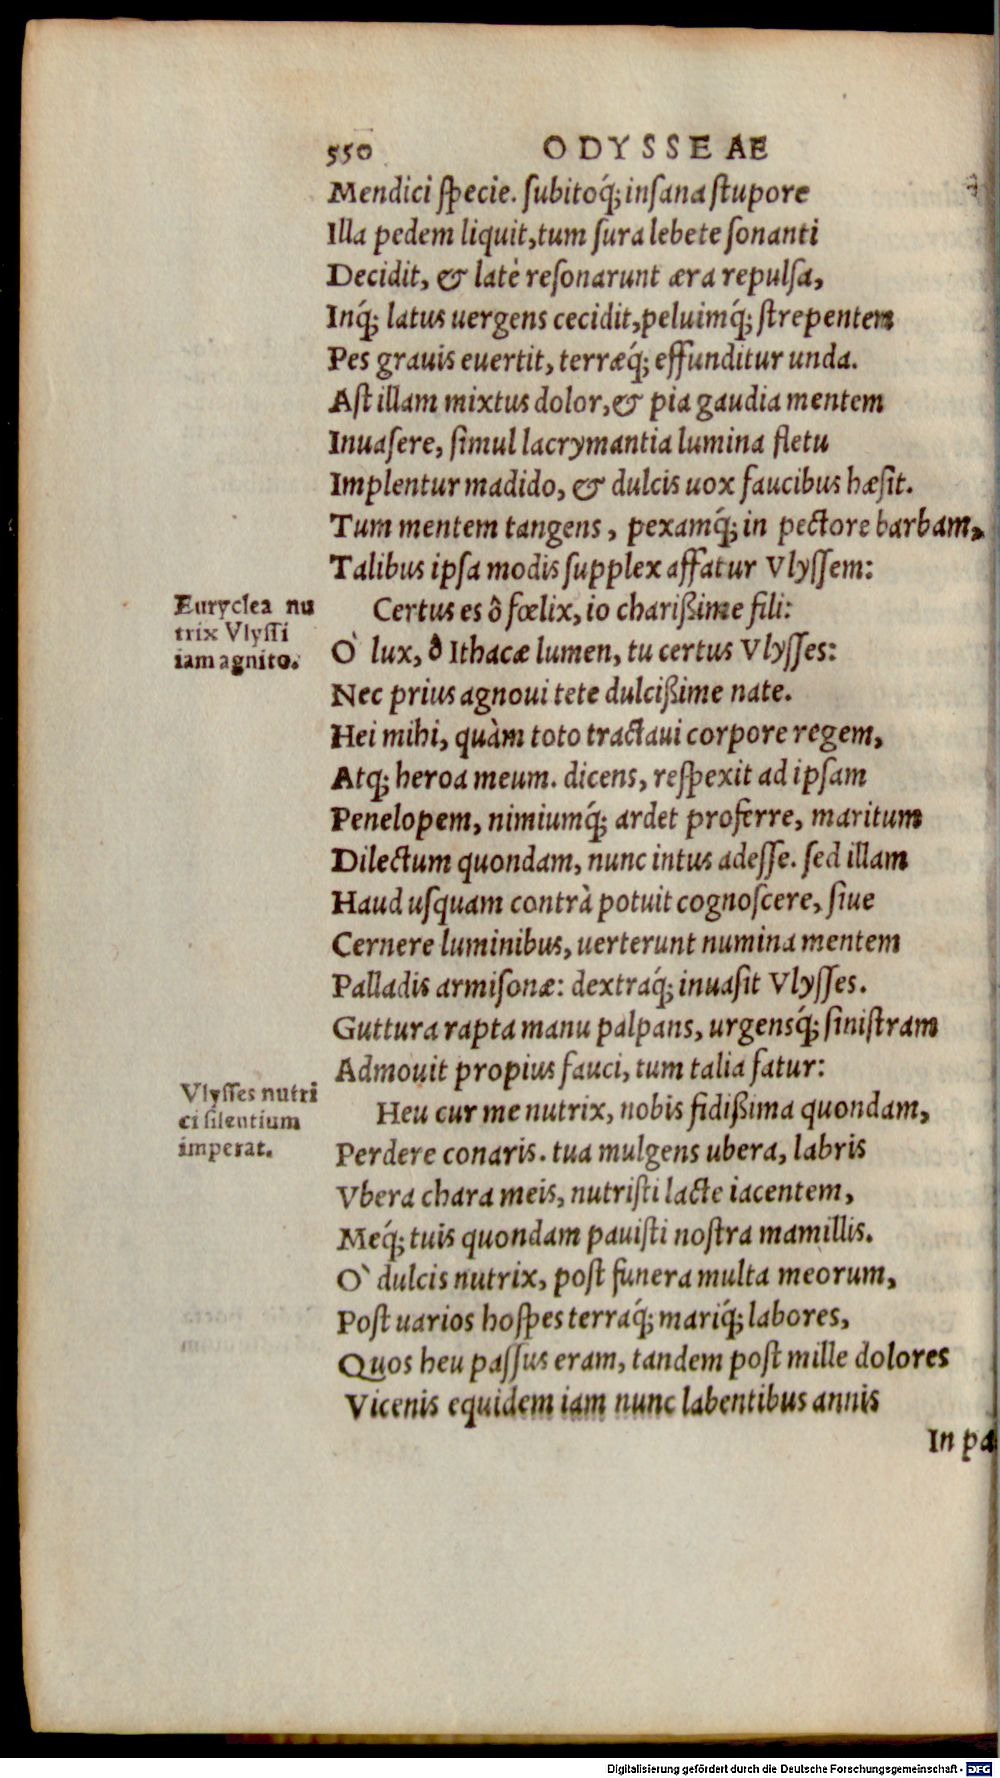 550 ODYSSEAE
Mendici ſpecie. ſubitoq́; inſana ſtupore
Illa pedem liquit, tum ſura lebete ſonanti
Decidit, & latè reſonarunt æra repulſa,
Inq́; latus uergens cecidit, peluimq́; ſtrepentem
Pes grauis euertit, terræq́; effunditur unda.
Aſt illam mixtus dolor, & pia gaudia mentem
Inuaſere, ſimul lacrymantia lumina fletu
Implentur madido, & dulcis uox faucibus hæſit.
Tum mentem tangens, pexamq́; in pectore barbam,
Talibus ipſa modis ſupplex affatur Vlyſſem:
Euryclea nu
trix Vlyſſi
iam agnito.
Certus es ô fœlix, io charißime fili:
O` lux, ô Ithacæ lumen, tu certus Vlyſſes:
Nec prius agnoui tete dulcißime nate.
Hei mihi, quàm toto tractaui corpore regem,
Atq; heroa meum. dicens, reſpexit ad ipſam
Penelopem, nimiumq́; ardet proferre, maritum
Dilectum quondam, nunc intus adeſſe. ſed illam
Haud uſquam contrà potuit cognoſcere, ſiue
Cernere luminibus, uerterunt numina mentem
Palladis armiſonæ: dextraq́; inuaſit Vlyſſes.
Guttura rapta manu palpans, urgensq́; ſiniſtram
Admouit propius fauci, tum talia fatur:
Vlyſſes nutri
ci ſilentium
imperat.
Heu cur me nutrix, nobis fidißima quondam,
Perdere conaris. tua mulgens ubera, labris
Vbera chara meis, nutriſti lacte iacentem,
Meq́; tuis quondam pauiſti noſtra mamillis.
O` dulcis nutrix, poſt funera multa meorum,
Poſt uarios hoſpes terraq́; mariq́; labores,
Quos heu paſſus eram, tandem poſt mille dolores
Vicenis equidem iam nunc labentibus annis
In pa
Digitalisierung gefördert durch die Deutsche Forschungsgemeinschaft - DFG